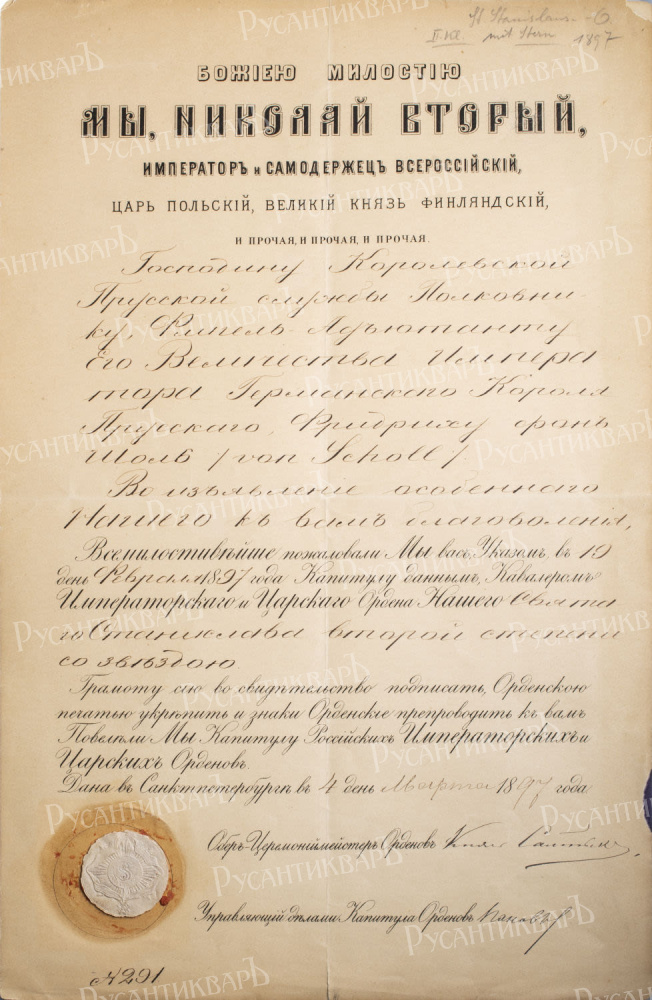 St. Stanislaus-O.
II. Kl. mit Stern 1897
БОЖІЕЮ МИЛОСТІЮ
МЫ, НИКОЛАЙ ВТОРЫЙ,
ИМПЕРАТОРЪ и САМОДЕРЖЕЦЪ ВСЕРОССІЙСКІЙ,
ЦАРЬ ПОЛЬСКІЙ, ВЕЛИКІЙ КНЯЗЬ ФИНЛЯНДСКІЙ,
И ПРОЧАЯ, И ПРОЧАЯ, И ПРОЧАЯ.
Господину Королевской
Прусской службы Полковни-
ку, Флигель-Адъютанту
Его Величества Импера
тора Германскаго Короля
Прусскаго, Фридриху фонъ
Шоль /von Scholl/.
Во изъявленіе особеннаго
Нашего къ вамъ благоволенія,
Всемилостивѣйше пожаловали Мы васъ, Указомъ, въ 19
день Февраля 1897 года Капитулу даннымъ, Кавалеромъ
Императорскаго и Царскаго Ордена Нашего Свята
го Станислава второй степени
со звѣздою.
Грамоту сію во свидѣтельство подписать, Орденскою
печатью укрѣпить и знаки Орденскіе препроводить къ вамъ
Повелѣли Мы Капитулу Россійскихъ Императорскихъ и
Царскихъ Орденовъ.
Дана въ Санктпетербургѣ въ 4 день Марта 1897 года
Оберъ-Церемоніймейстеръ Орденовъ
Управляющій дѣлами Капитула Орденовъ
№ 291
РУСАНТИКВАРЪ